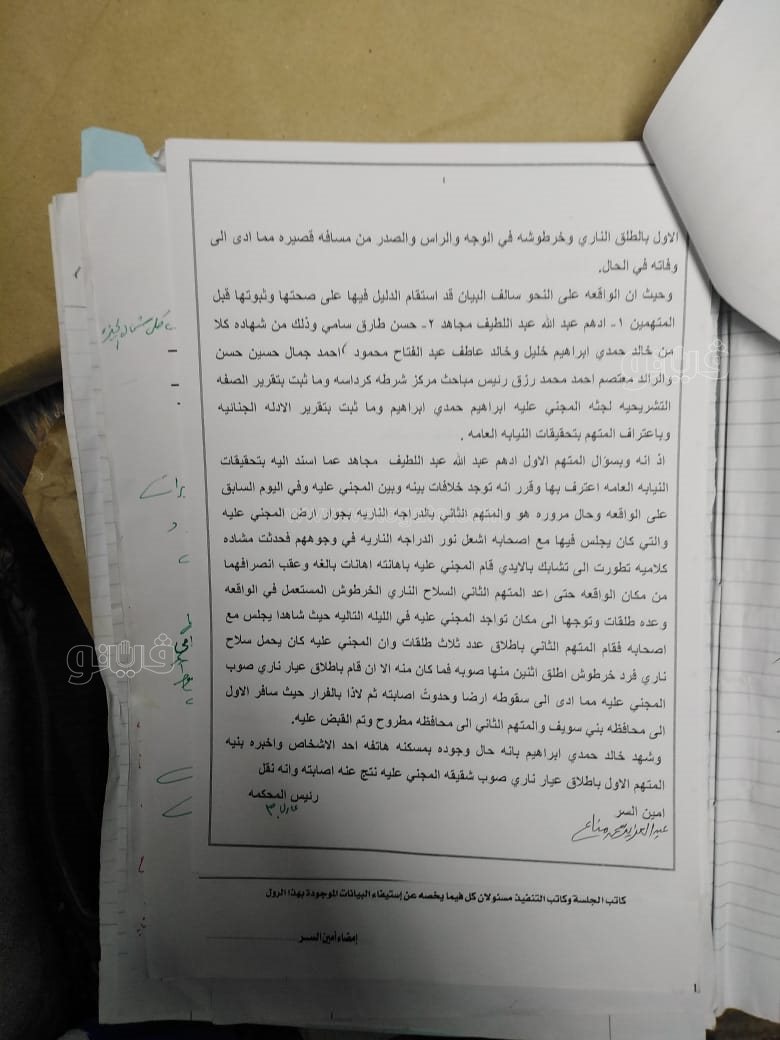 الاول بالطلق الناري وخرطوشه في الوجه والراس والصدر من مسافه قصيره مما ادى الى
وفاته في الحال.
وحيث ان الواقعه على النحو سالف البيان قد استقام الدليل فيها على صحتها وثبوتها قبل
المتهمين ١- ادهم عبد الله عبد اللطيف مجاهد ٢- حسن طارق سامي وذلك من شهاده كلا
من خالد حمدي ابراهيم خليل وخالد عاطف عبد الفتاح محمود /احمد جمال حسين حسن
والرائد معتصم احمد محمد رزق رئيس مباحث مركز شرطه كرداسه وما ثبت بتقرير الصفه
التشريحيه لجثه المجني عليه ابراهيم حمدي ابراهيم وما ثبت بتقرير الادله الجنائيه
وباعتراف المتهم بتحقيقات النيابه العامه .
اذ انه وبسؤال المتهم الاول ادهم عبد الله عبد اللطيف مجاهد عما اسند اليه بتحقيقات
النيابه العامه اعترف بها وقرر انه توجد خلافات بينه وبين المجني عليه وفي اليوم السابق
على الواقعه وحال مروره هو والمتهم الثاني بالدراجه الناريه بجوار ارض المجني عليه
والتي كان يجلس فيها مع اصحابه اشعل نور الدراجه الناريه في وجوههم فحدثت مشاده
كلاميه تطورت الى تشابك بالايدي قام المجني عليه باهانته اهانات بالغه وعقب انصرافهما
من مكان الواقعه حتى اعد المتهم الثاني السلاح الناري الخرطوش المستعمل في الواقعه
وعده طلقات وتوجها الى مكان تواجد المجني عليه في الليله التاليه حيث شاهدا يجلس مع
اصحابه فقام المتهم الثاني باطلاق عدد ثلاث طلقات وان المجني عليه كان يحمل سلاح
ناري فرد خرطوش اطلق اثنين منها صوبه فما كان منه الا ان قام باطلاق عيار ناري صوب
المجني عليه مما ادى الى سقوطه ارضا وحدوث اصابته ثم لاذا بالفرار حيث سافر الاول
الى محافظه بني سويف والمتهم الثاني الى محافظه مطروح وتم القبض عليه.
وشهد خالد حمدي ابراهيم بانه حال وجوده بمسكنه هاتفه احد الاشخاص واخبره بنيه
المتهم الاول باطلاق عيار ناري صوب شقيقه المجني عليه نتج عنه اصابته وانه نقل
امين السر
رئيس المحكمه
كاتب الجلسة وكاتب التنفيذ مسئولان كل فيما يخصه عن إستيفاء البيانات الموجودة بهذا الرول
إمضاء أمين السر
ڤيتو
ڤيتو